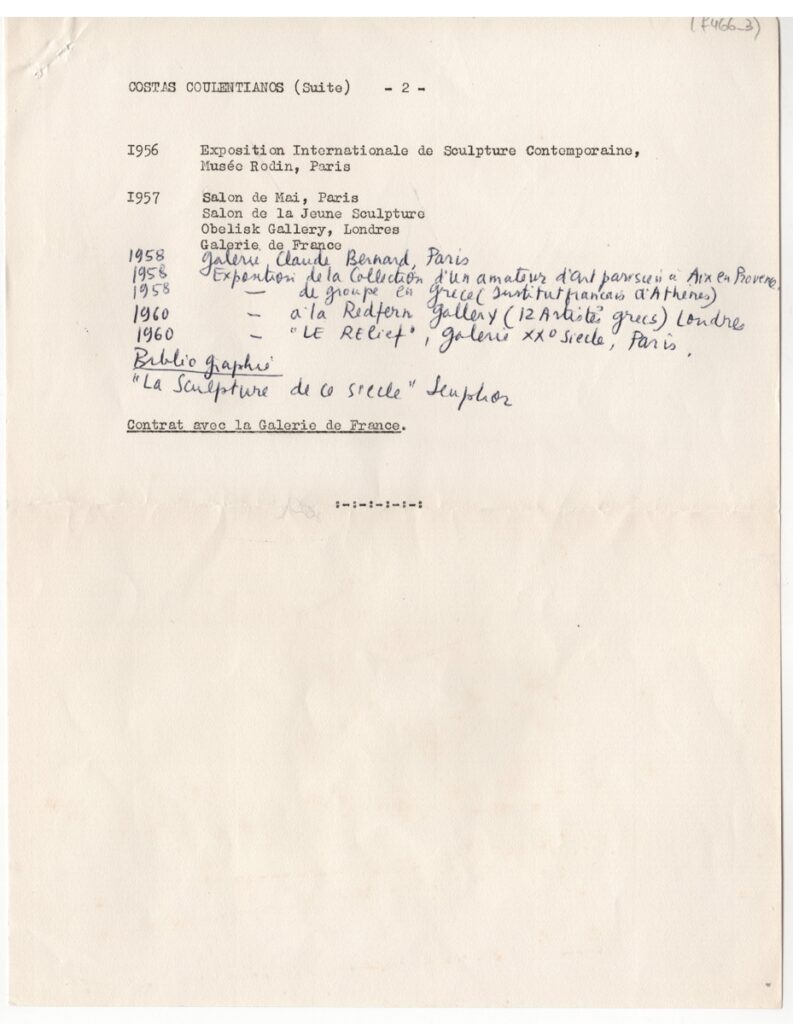 (F466_3)
COSTAS COULENTIANOS (Suite) - 2 -
I956 Exposition Internationale de Sculpture Contemporaine,
Musée Rodin, Paris
I957 Salon de Mai, Paris
Salon de la Jeune Sculpture
Obelisk Gallery, Londres
Galerie de France
1958 Galerie Claude Bernard, Paris
1958 Exposition de la Collection d'un amateur d'art parisien à Aix en Provence
1958 — de groupe en Grèce (Institut français d'Athènes)
1960 — à la Redfern Gallery (12 Artistes grecs) Londres
1960 — "LE RELief", Galerie XXº Siecle, Paris.
Bibliographie
"La Sculpture de ce siecle" Seuphor
Contrat avec la Galerie de France.
:-:-:-:-:-: